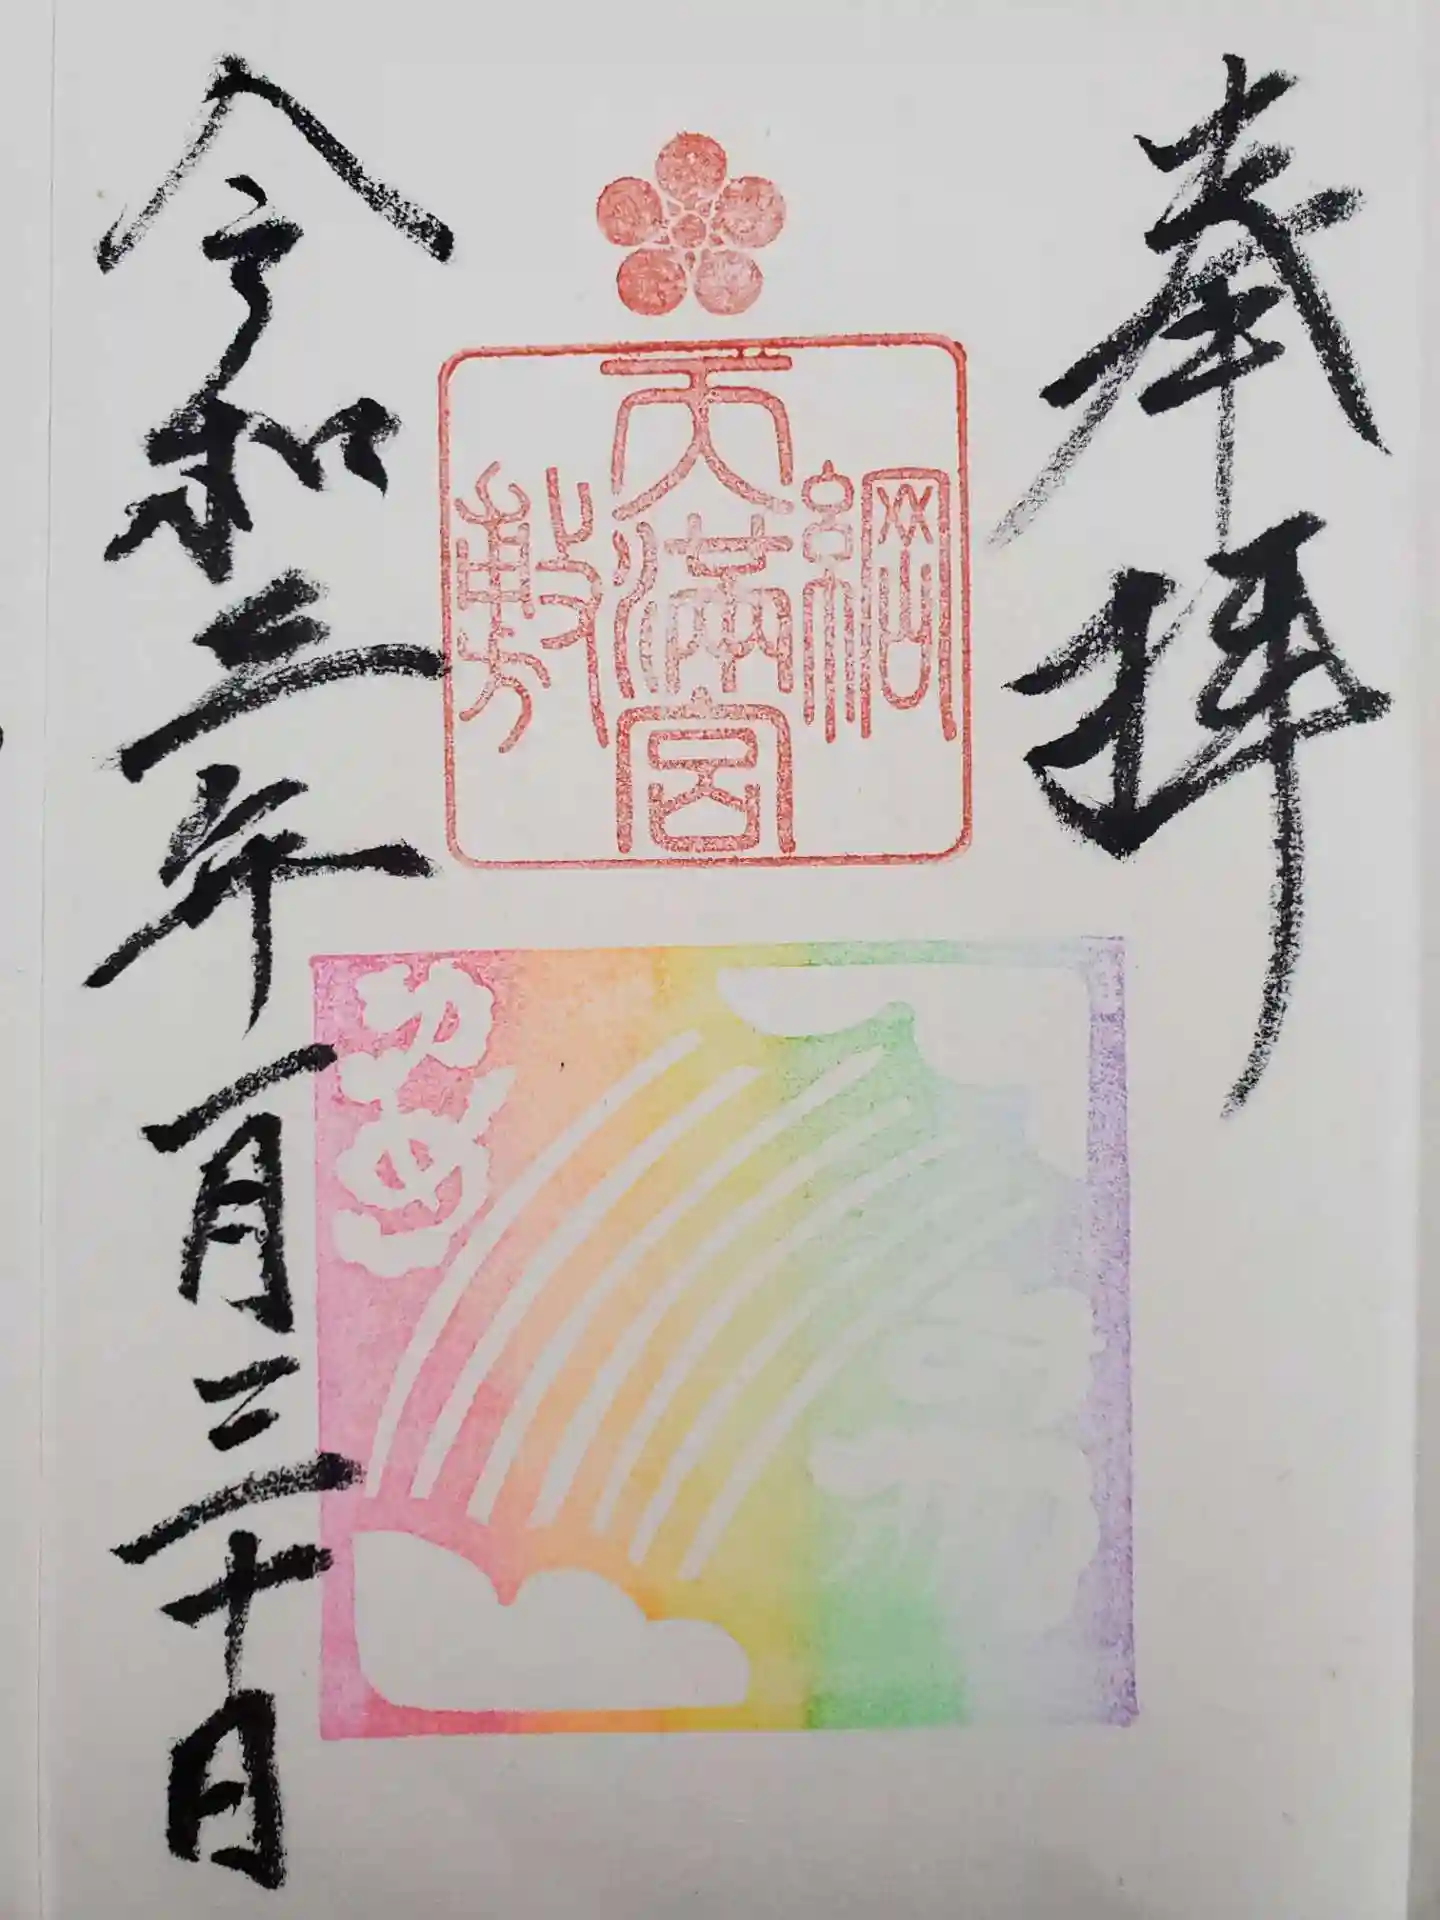 奉拝
綱
天満宮
敷
令和三年一月三十日